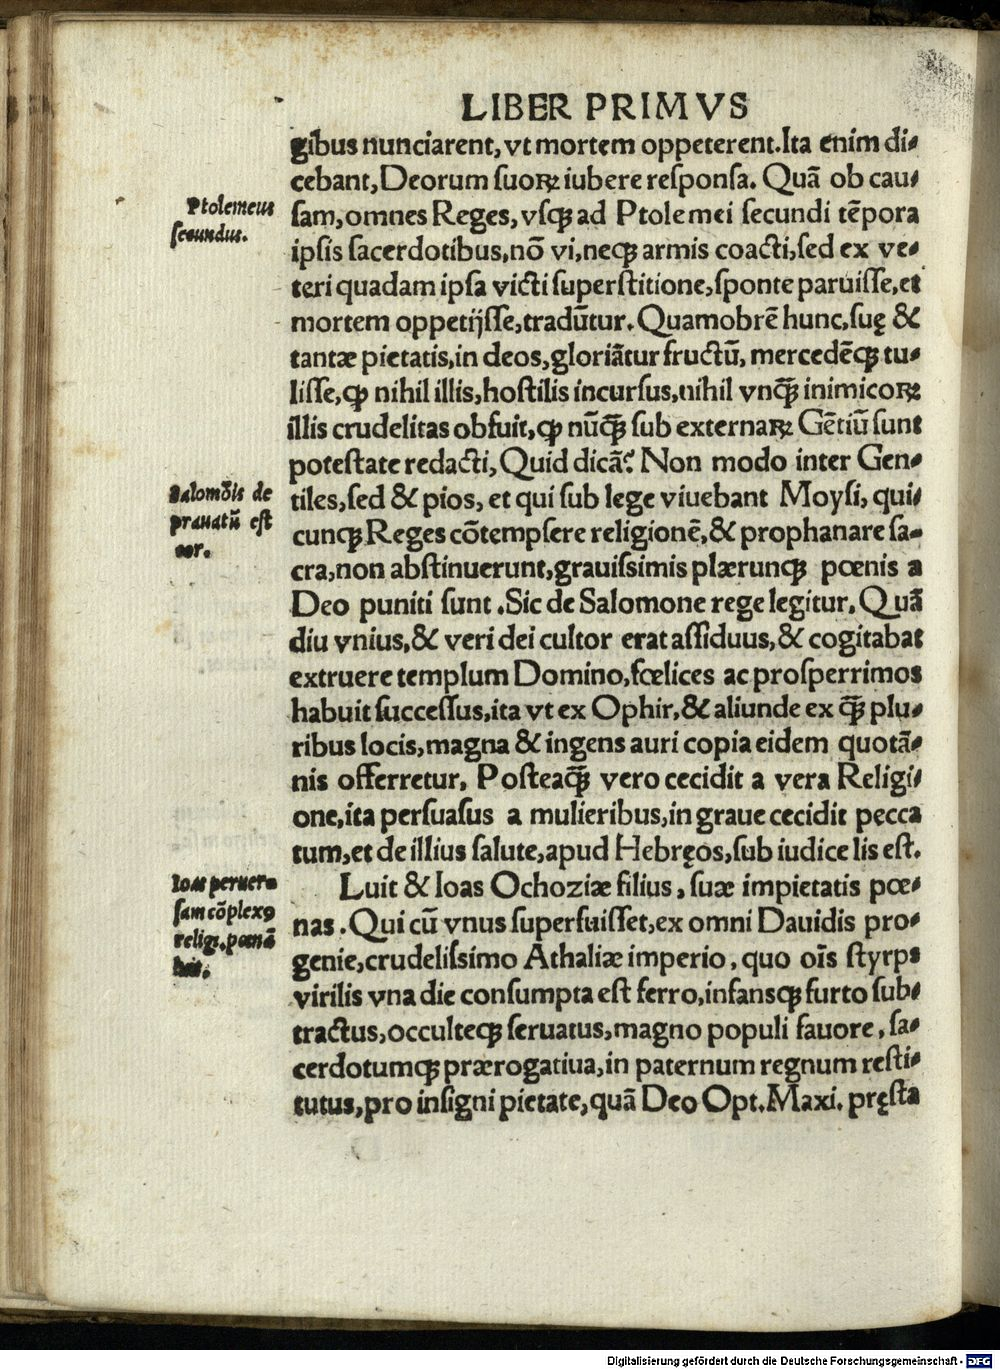 LIBER PRIMVS
gibus nunciarent, vt mortem oppeterent. Ita enim di⸗
cebant, Deorum suoꝝ iubere responsa. Quā ob cau⸗
Ptolemeus
secundus.
sam, omnes Reges, vsqꝫ ad Ptolemei secundi tēpora
ipsis sacerdotibus, nō vi, neqꝫ armis coacti, sed ex ve⸗
teri quadam ipsa victi superstitione, sponte paruisse, et
mortem oppetijsse, tradūtur. Quamobrē hunc, suę &
tantæ pietatis, in deos, gloriātur fructū, mercedēqꝫ tu⸗
lisse, ꝙ nihil illis, hostilis incursus, nihil vnqꝫ̄ inimicoꝝ
illis crudelitas obfuit, ꝙ nūqꝫ̄ sub externaꝝ Gētiū sunt
potestate redacti, Quid dicā? Non modo inter Gen⸗
Salomōis de
prauatū est
cor.
tiles, sed & pios, et qui sub lege viuebant Moysi, qui⸗
cunqꝫ Reges cōtempsere religionē, & prophanare sa⸗
cra, non abstinuerunt, grauissimis plærunqꝫ pœnis a
Deo puniti sunt. Sic de Salomone rege legitur. Quā
diu vnius, & veri dei cultor erat assiduus, & cogitabat
extruere templum Domino, fœlices ac prosperrimos
habuit successus, ita vt ex Ophir, & aliunde ex qꝫ̄ plu⸗
ribus locis, magna & ingens auri copia eidem quotā⸗
nis offerretur. Posteaqꝫ̄ vero cecidit a vera Religi⸗
one, ita persuasus a mulieribus, in graue cecidit pecca
tum, et de illius salute, apud Hebręos, sub iudice lis est.
Ioas peruer⸗
sam cōplexꝰ
relig. pœnā
luit.
Luit & Ioas Ochoziæ filius, suæ impietatis pœ⸗
nas. Qui cū vnus superfuisset, ex omni Dauidis pro⸗
genie, crudelissimo Athaliæ imperio, quo oīs styrps
virilis vna die consumpta est ferro, infansqꝫ furto sub⸗
tractus, occulteqꝫ seruatus, magno populi fauore, sa⸗
cerdotumqꝫ prærogatiua, in paternum regnum resti⸗
tutus, pro insigni pietate, quā Deo Opt. Maxi. pręsta
Digitalisierung gefördert durch die Deutsche Forschungsgemeinschaft - DFG